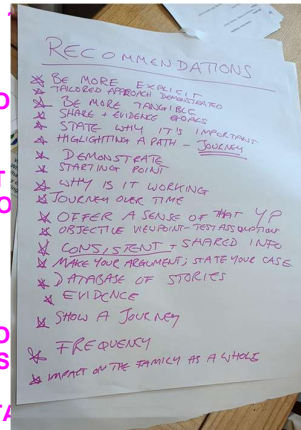 RECOMMENDATIONS
BE MORE EXPLICIT
TAILORED APPROACH DEMONSTRATED
BE MORE TANGIBLE
SHARE + EVIDENCE
STATE WHY IT'S IMPORTANT
HIGHLIGHTING A PATH - JOURNEY
DEMONSTRATE
STARTING POINT
WHY IS IT WORKING
JOURNEY OVER TIME
OFFER A SENSE OF THAT YP
OBJECTIVE VIEWPOINT - TEST ASSUMPTION
CONSISTENT + SHARED INFO
MAKE YOUR ARGUMENT, STATE YOUR CASE
DATABASE OF STORIES
EVIDENCE
SHOW A JOURNEY
FREQUENCY
IMPACT ON THE FAMILY AS A WHOLE